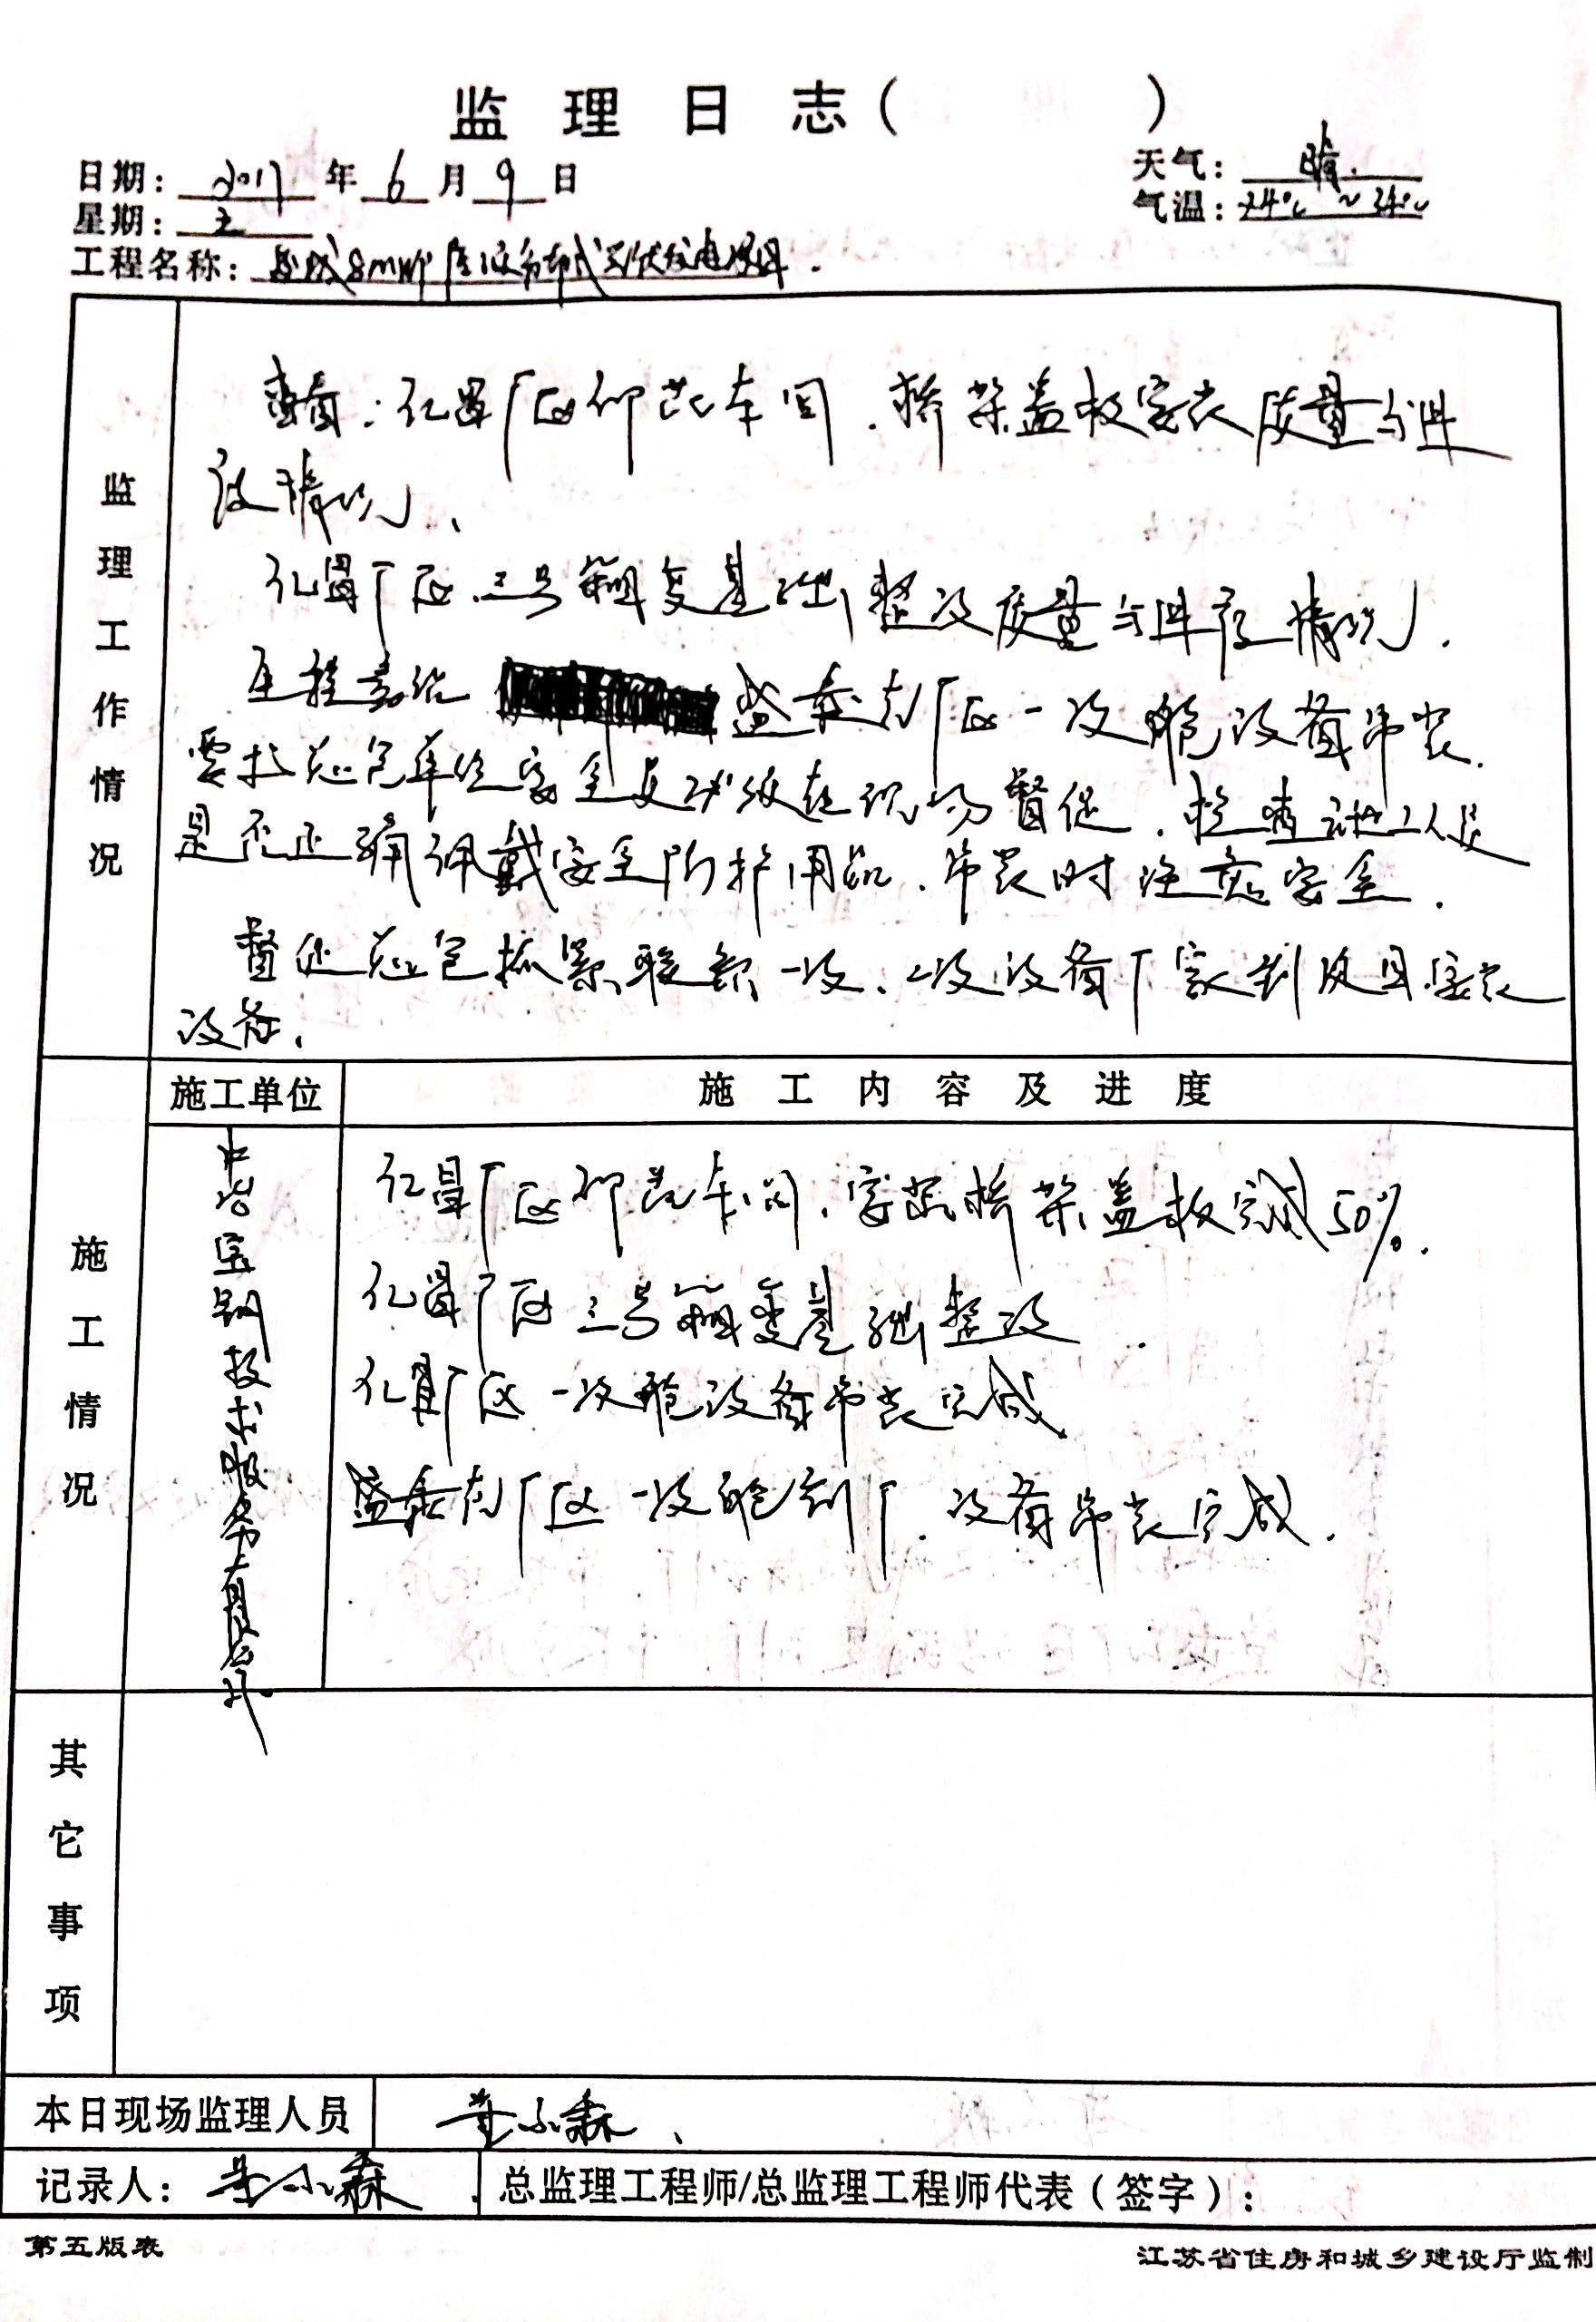 监理日志（ ）
日期：2017年6月9日
天气：晴.
星期：五
气温：24℃~34℃
工程名称：8MW 分布式光伏发电项目.
监理工作情况
查看：仁昌厂区 车间.桥架盖板安装质量与
情况、
仁昌厂区.三号箱变基础整改质量与 情况.
盛泰 厂区一次舱设备吊装.
要求总包单位安全 在现场督促.检查施工人员
是否正确佩戴安全防护用品.吊装时注意安全.
督促总包抓紧联系一次、二次设备厂家到项目安装
设备.
施工情况
施工单位
施工内容及进度
中冶宝钢技术服务有限公司
仁昌厂区 车间.安装桥架盖板完成50%.
仁昌厂区三号箱变基础整改.
仁昌厂区一次舱设备吊装完成
盛泰 厂区一次舱到厂.设备吊装完成.
其它事项
本日现场监理人员
记录人：
总监理工程师/总监理工程师代表（签字）：
第五版表
江苏省住房和城乡建设厅监制